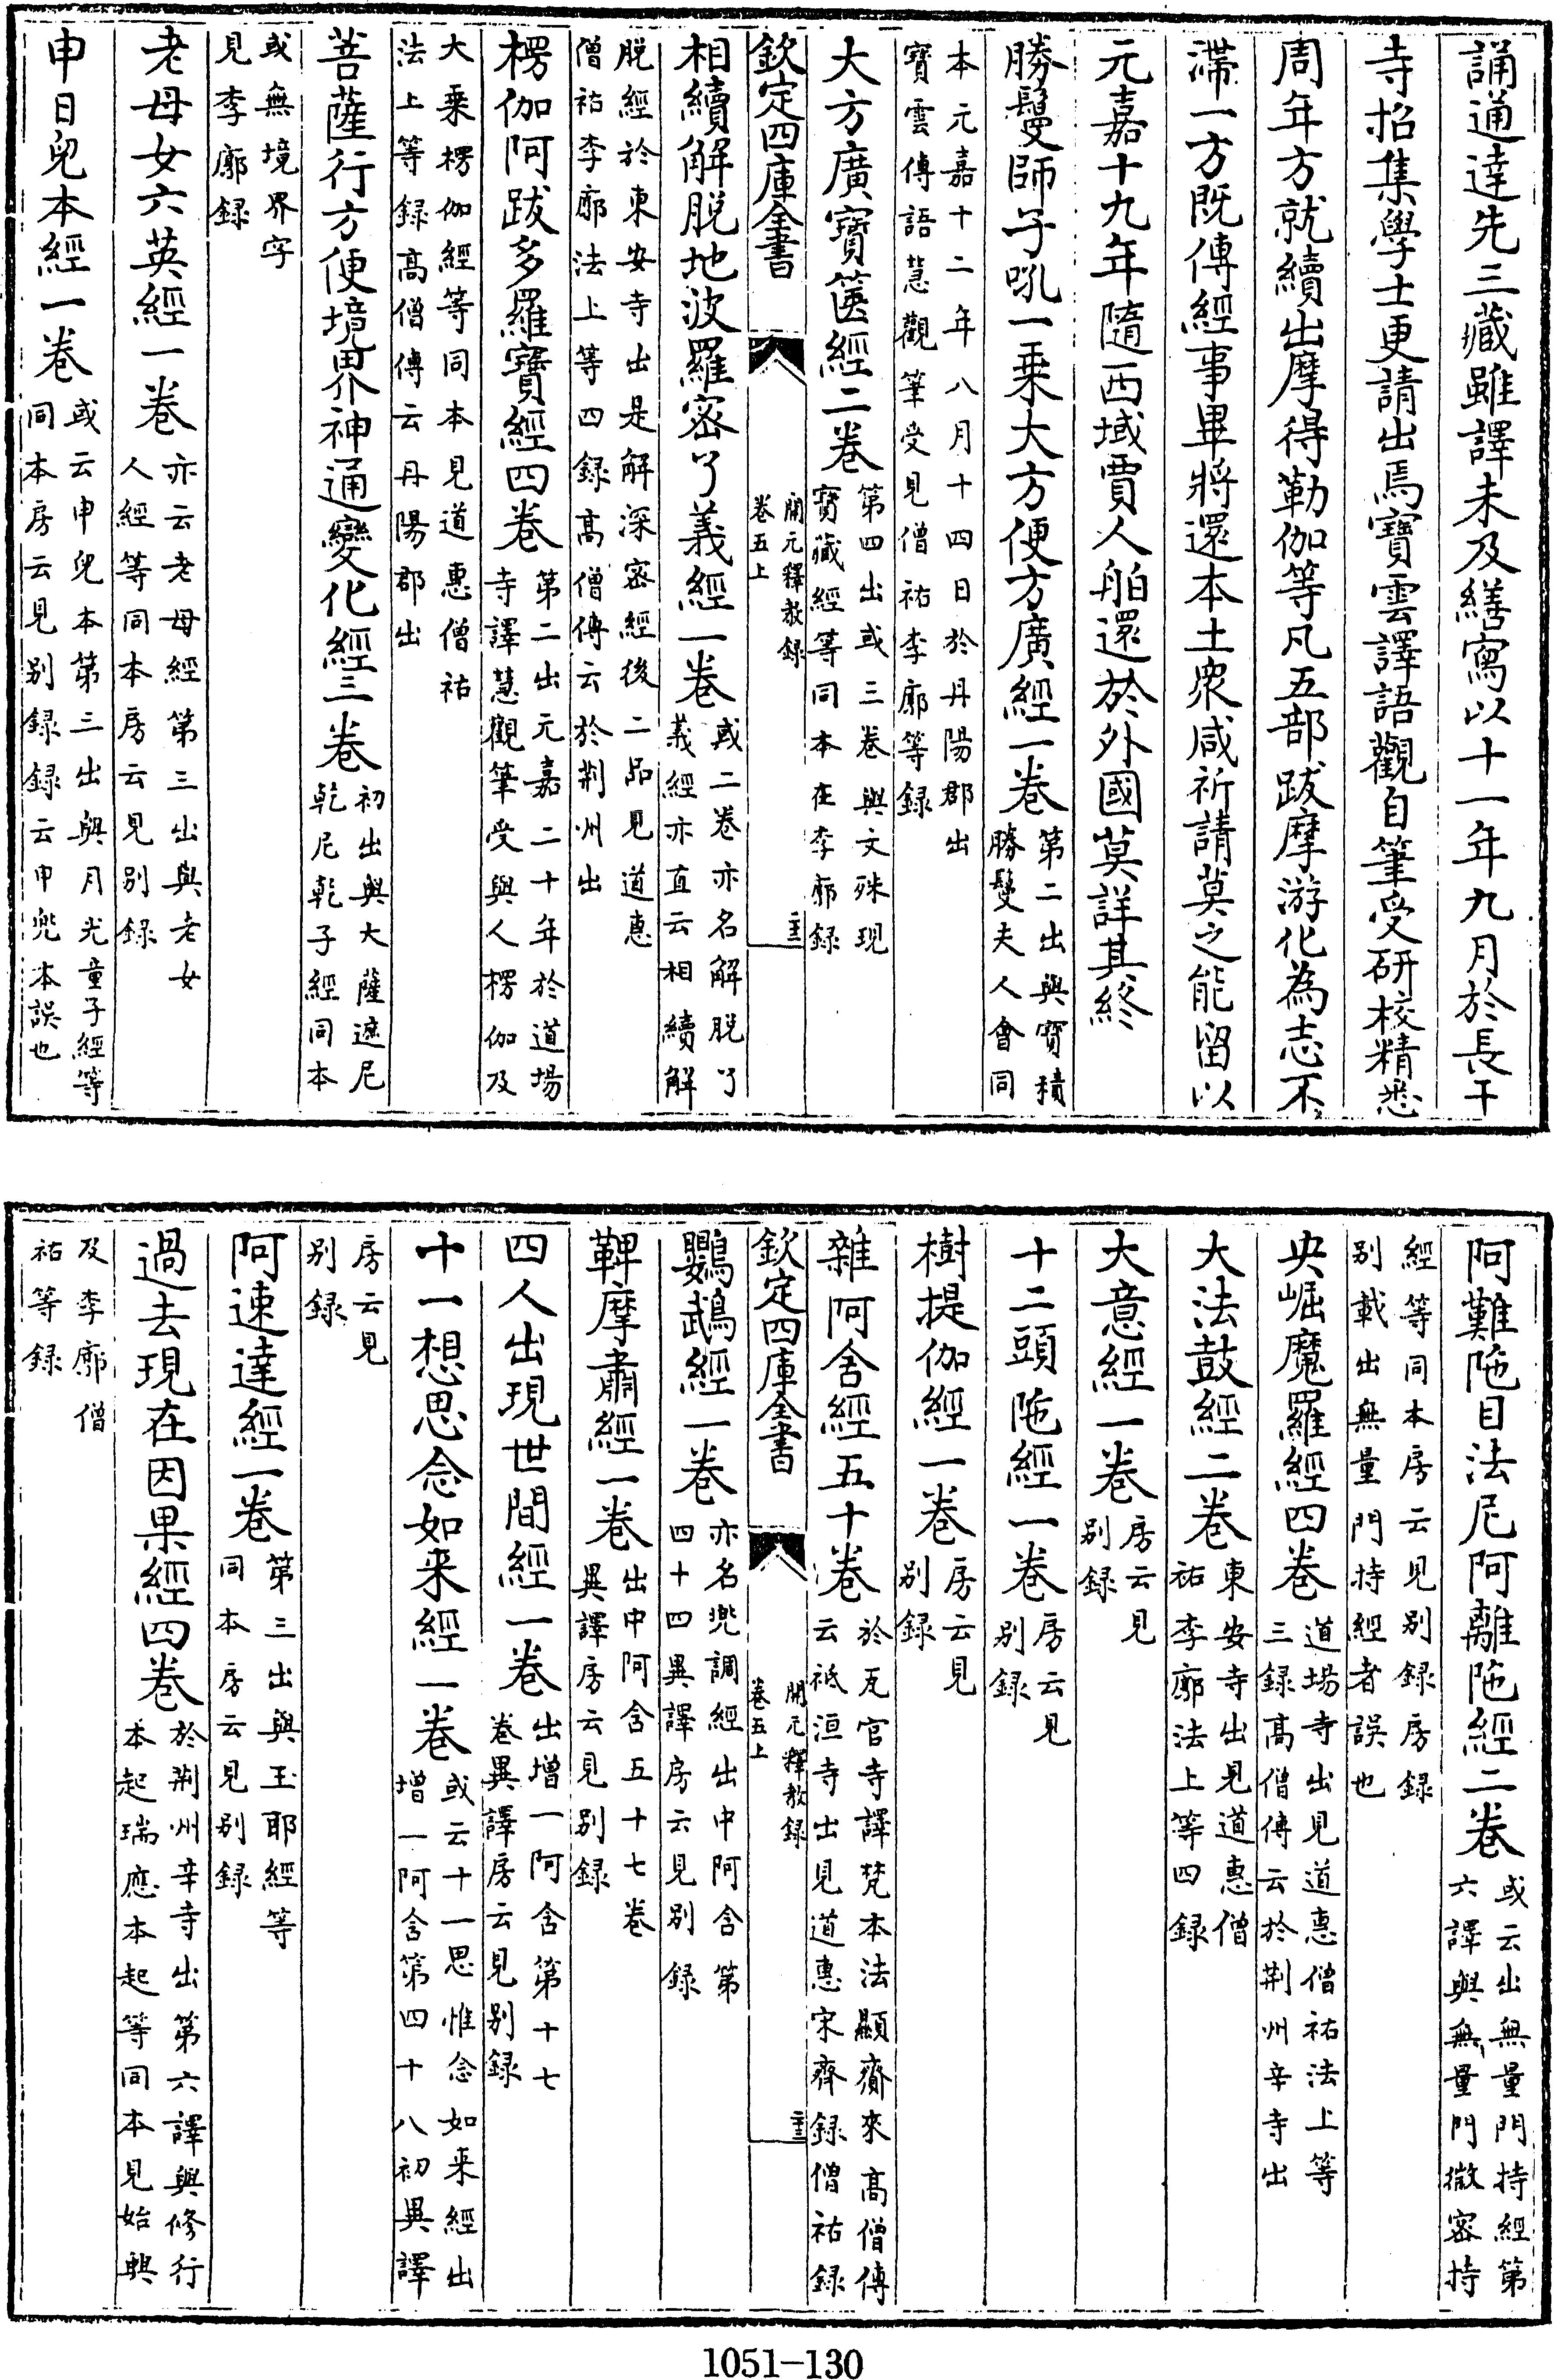 誦通達先三藏雖譯未及繕寫以十一年九月於長干
寺招集學士更請出焉寶雲譯語觀自筆受研校精悉
周年方就續出摩得勒伽等凡五部跋摩游化為志不
滯一方既傳經事畢將還本土衆咸祈請莫之能留以
元嘉十九年隨西域賈人舶還於外國莫詳其終
勝鬘師子吼一乗大方便方廣經一卷第二出與寶積
勝鬘夫人會同
本元嘉十二年八月十四日於丹陽郡出
寶雲傳語慧觀筆受見僧祐李廓等録
大方廣寶篋經二卷第四出或三卷與文殊現
寶藏經等同本在李廓録
欽定四庫全書
開元釋教録
卷五上
相續解脱地波羅密了義經一卷或二卷亦名解脱了
義經亦直云相續解
脱經於東安寺出是解深密經後二品見道惠
僧祐李廓法上等四録高僧傳云於荆州出
楞伽阿跋多羅寶經四卷第二出元嘉二十年於道場
寺譯慧觀筆受與人楞伽及
大乗楞伽經等同本見道惠僧祐
法上等録高僧傳云丹陽郡出
菩薩行方便境界神通變化經三卷初出與大薩遮尼
乾尼乾子經同本
或無境界字
見李廓録
老母女六英經一卷亦云老母經第三出與老女
人經等同本房云見別録
申日兒本經一卷或云申兒本第三出與月光童子經等
同本房云見别録録云申兜本誤也
阿難陁目法尼阿離陁經二卷或云出無量門持經第
六譯與無量門微密持
經等同本房云見别録房録
别載出無量門持經者誤也
央崛魔羅經四卷道場寺出見道惠僧祐法上等
三録高僧傳云於荆州辛寺出
大法鼓經二卷東安寺出見道惠僧
祐李廓法上等四録
大意經一卷房云見
别録
十二頭陁經一卷房云見
别録
樹提伽經一卷房云見
别録
雜阿含經五十卷於瓦官寺譯梵本法顯齎來高僧傳
云祇洹寺出見道惠宋齊録僧祐録
欽定四庫全書
開元釋教録
卷五上
鸚鵡經一卷亦名兜調經出中阿含第
四十四異譯房云見别録
鞞摩肅經一卷出中阿含五十七卷
異譯房云見别録
四人出現世間經一卷出增一阿含第十七
卷異譯房云見别録
十一想思念如来經一卷或云十一思惟念如来經出
增一阿含第四十八初異譯
房云見
别録
阿速達經一卷第三出與玉耶經等
同本房云見别録
過去現在因果經四卷於荆州辛寺出第六譯與修行
本起瑞應本起等同本見始興
及李廓僧
祐等録
1051-130